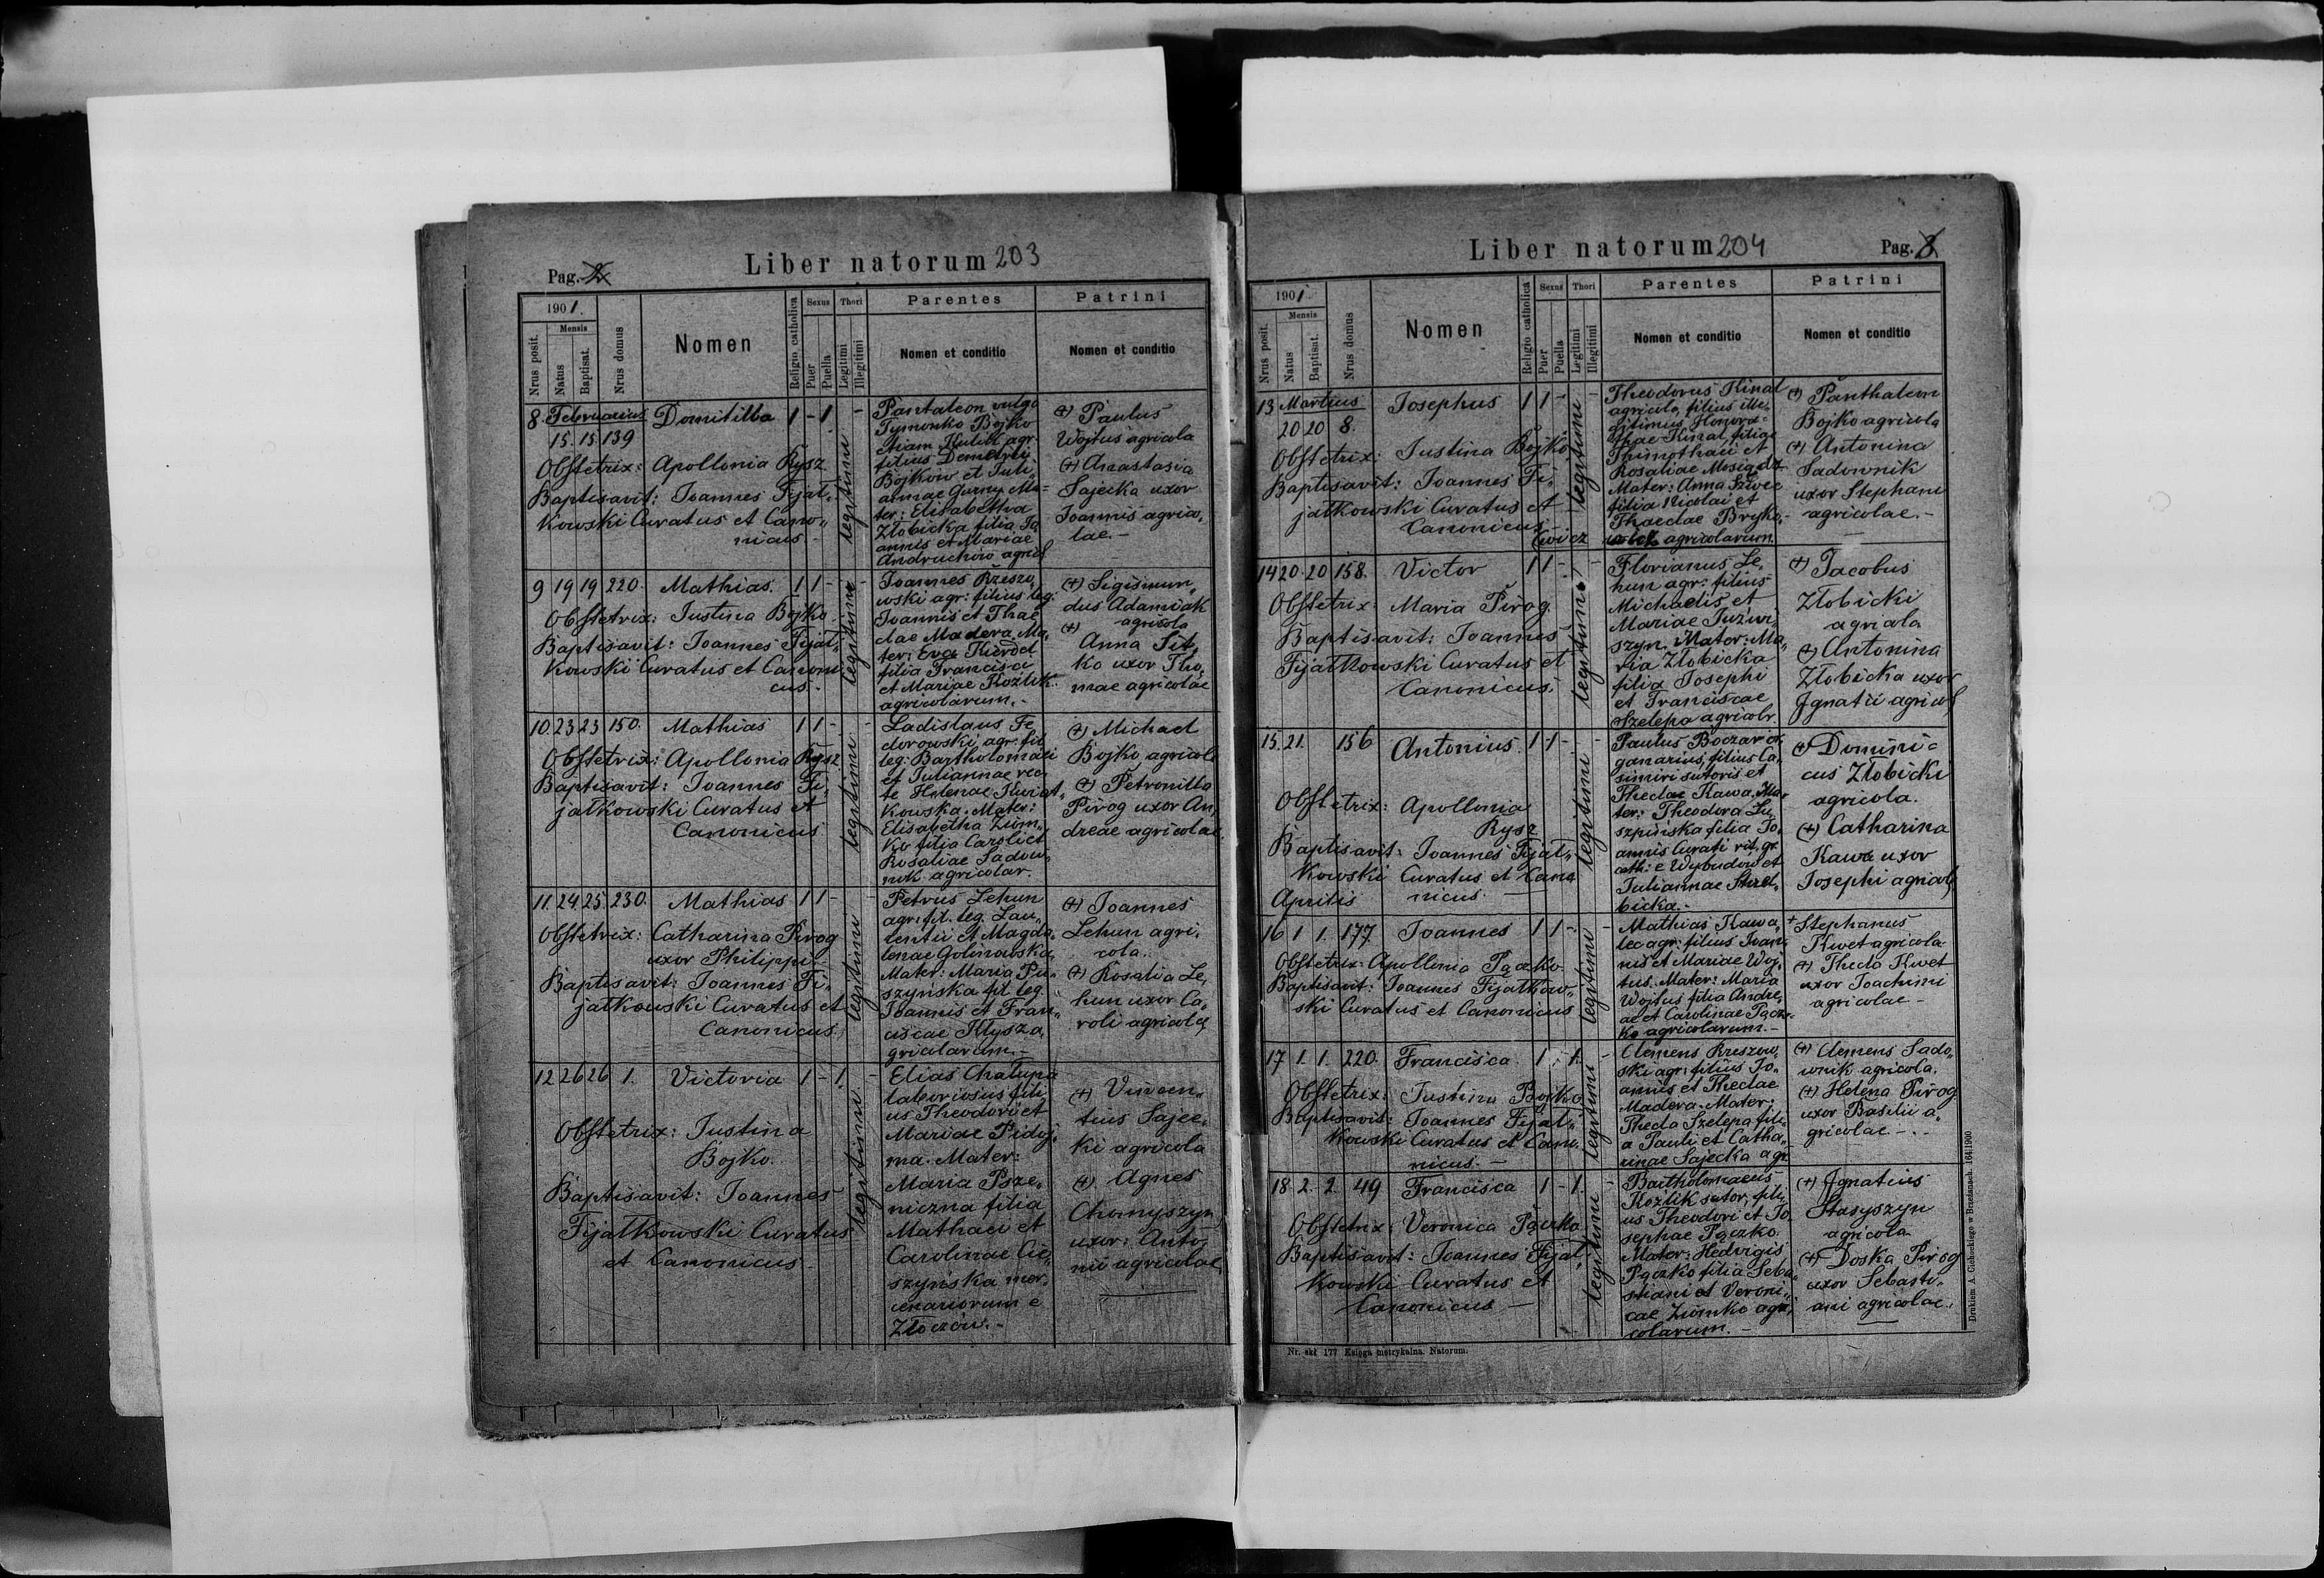 Liber natorum 203
Pag. 2
1901.
Nrus posit.
Mensis
Natus
Baptisat.
Nrus domus
Nomen
Religio catholica
Sexus
Puer
Puella
Thori
Legitimi
Illegitimi
Parentes
Nomen et conditio
Patrini
Nomen et conditio
8. Februarius Domitilla 1 - 1 -
15. 15. 139
Obstetrix: Apollonia Rysz
Baptisavit: Joannes Fijał„
kowski Curatus et Cano„
nicus -
legitimi
Pantaleon vulgo
Tymonko Bojko
etiam Kulik agr.
filius Demetrii
Bojkow et Juli„
annae Gurny Ma=
ter: Elisabetha
Złobicka filia Jo
annis et Mariae
Andruchow agric.
(+) Paulus
Wojtus agricola
(+) Anastasia
Sajecka uxor
Joannis agrico„
lae. -
9 19 19 220. Mathias. 1 1 - -
Obstetrix: Justina Bojko
Baptisavit: Joannes Fijał„
kowski Curatus et Canoni
cus. -
legitimi
Joannes Rzeszo„
wski agr: filius leg:
Joannis et Thae
clae Madera, Ma„
ter: Eva Kierdel
filia Francisci
et Mariae Kozlik
agricolarum. -
(+) Sigismun„
dus Adamiak
agricola
(+) Anna Sit„
ko uxor Tho„
mae agricolae
10. 23 23 150. Mathias 1 1 - -
Obstetrix: Apollonia Rysz
Baptisavit: Joannes Fi„
jałkowski Curatus et
Canonicus
legitimi
Ladislaus Fe
dorowski agr. fil
leg: Bartholomaei
et Juliannae rec„
te Helenae Kwiat„
kowska. Mater:
Elisabetha Ziom„
ko filia Caroli et
Rosaliae Sadow„
nik agricolar.
(+) Michael
Bojko agricola
(+) Petronilla
Pirog uxor An„
dreae agricolae
11. 24. 25. 230. Mathias 1 1 - -
Obstetrix: Catharina Pirog
uxor Philippi. -
Baptisavit: Joannes Fi„
jałkowski Curatus et
Canonicus
legitimi
Petrus Lehun
agr: fil. leg. Lau„
rentii et Magda„
lenae Golinowska,
Mater: Maria Pu„
szyńska fil leg
Joannis et Fran„
ciscae Kłysz a„
gricolarum. -
(+) Joannes
Lehun agri„
cola.
(+) Rosalia Le„
hun uxor Ca„
roli agricolae
12 26 26 1. Victoria 1 - 1. -
Obstetrix: Justina
Bojko.
Baptisavit: Joannes
Fijałkowski Curatus
et Canonicus.
legitimi
Elias Chałupa
laboriosus fili„
us Theodori et
Mariae Pidoj„
ma. Mater:
Maria Psze„
niczna filia
Mathaei et
Carolinae Cie„
szyńska mer„
cenariorum e
Złoczów. -
(+) Vincen„
tius Sajec„
ki agricola
(+) Agnes
Chamyszyn
uxor: Anto„
nii agricolae
Liber natorum 204
Pag. 3
1901.
Nrus posit.
Mensis
Natus
Baptisat.
Nrus domus
Nomen
Religio catholica
Sexus
Puer
Puella
Thori
Legitimi
Illegitimi
Parentes
Nomen et conditio
Patrini
Nomen et conditio
13 Martius Josephus 1 1 - -
20 20 8.
Obstetrix: Justina Bojko
Baptisavit: Joannes Fi„
jałkowski Curatus et
Canonicus. -
legitimi
Theodorus Kinal
agricola, filius ille„
gitimus Honora=
thae Kinal, filiae
Thimothaei et
Rosaliae Mosiądz
Mater: Anna Szwec
filia Nicolai et
Thaeclae Bryko„
wicz agricolarum
(+) Panthaleon
Bojko agricola
(+) Antonina
Sadownik
uxor Stephani
agricolae. -
14 20. 20 158. Victor 1 1 - -
Obstetrix: Maria Pirog.
Baptisavit: Joannes
Fijałkowski Curatus et
Canonicus.
legitimi
Florianus Le„
hun agr: filius
Michaelis et
Mariae Juzwi„
szyn. Mater: Ma„
ria Złobicka
filia Josephi
et Franciscae
Szelepa agricolr.
(+) Jacobus
Złobicki
agricola
(+) Antonina
Złobicka uxor
Ignatii agricol
15. 21. 156 Antonius. 1 1 - -
Obstetrix: Apollonia
Rysz
Baptisavit: Joannes Fijał„
kowski Curatus et Cano
nicus.
legitimi
Paulus Boczar or„
ganarius, filius Ca„
simiri sutoris et
Theclae Kawa. Ma„
ter: Theodora Lu„
szpińska filia Jo„
annis Curati rit. gr.
cath: e Wybudow et
Juliannae Strzel„
bicka. -
(+) Domini=
cus Złobicki
agricola.
(+) Catharina
Kawa uxor
Josephi agricol
Aprilis
16 1 1. 177 Joannes 1 1 - -
Obstetrix: Apollonia Pączko
Baptisavit: Joannes Fijałkow„
ski Curatus et Canonicus
legitimi
Mathias Kawa„
lec agr: filius Joan„
nis et Mariae Woj„
tus. Mater: Maria
Wojtus filia Andre„
ae et Carolinae Pącz„
ko agricolarum. -
+ Stephanus
Kwet agricola
(+) Thecla Kwet
uxor Joachimi
agricolae -
17 1. 1. 220. Francisca. 1 - 1. -
Obstetrix: Justina Bojko
Baptisavit: Joannes Fijał„
kowski Curatus et Cano„
nicus. -
legitimi
Clemens Rzeszow„
ski agr: filius Jo„
annis et Theclae
Madera. Mater:
Thecla Szelepa fili„
a Pauli et Catha„
rinae Sajecka agr.
(+) Clemens Sado„
wnik agricola.
(+) Helena Pirog
uxor Basilii a„
gricolae - . -
18 2. 2. 49 Francisca 1 - 1. -
Obstetrix: Veronica Pączko
Baptisavit: Joannes Fijał„
kowski Curatus et
Canonicus -
legitimi
Bartholomaeus
Kozlik sutor, fili„
us Theodori et Jo„
sephae Pączko.
Mater: Hedvigis
Pączko filia Seba„
stiani et Veroni„
cae Ziomko agri„
colarum. -
(+) Ignatius
Stasyszyn
agricola
(+) Doska Pirog
uxor Sebasti„
ani agricolae.
Nr. skł 177 Księga metrykalna. Natorum.
Drukiem A. Cichockiego w Brzeżanach. 164|1900